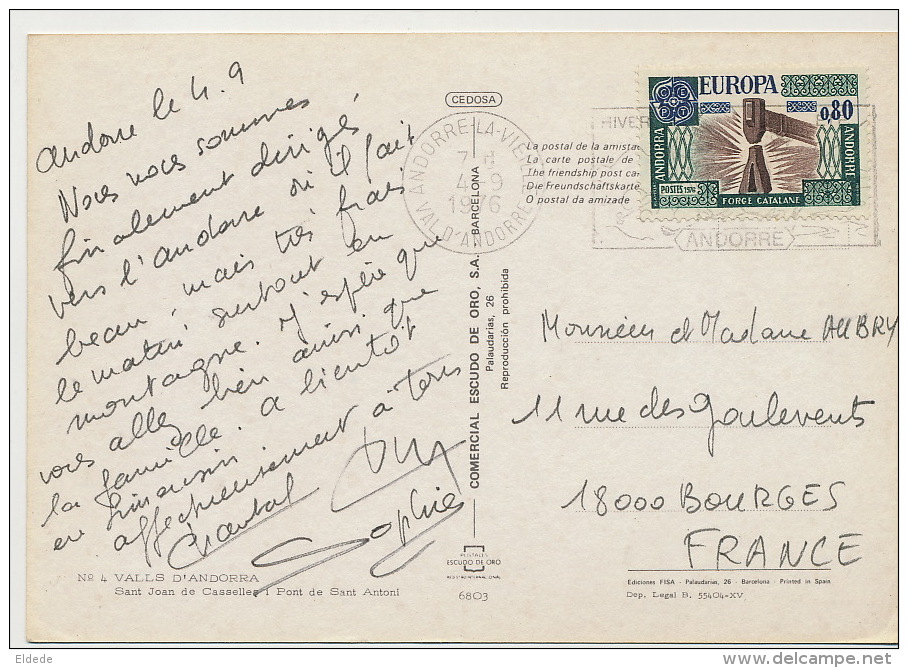 Andorre le 4.9
Nous nous sommes
finalement dirigés
vers l'andorre où il fait
beau, mais très frais
le matin surtout en
montagne. J'espère que
vous allez bien ainsi que
la famille. a bientôt
en limousin.
affectueusement à tous
Chantal
Sophie
Nº 4 VALLS D'ANDORRA
Sant Joan de Caselles i Pont de Sant Antoni
CEDOSA
COMERCIAL ESCUDO DE ORO, S.A. BARCELONA
Palaudarias, 26
Reproducción prohibida
POSTALES
ESCUDO DE ORO
6803
ANDORRE-LA-VIEILLE
7-H
4-9
1976
VAL D'ANDORRE
La postal de la amistad
La carte postale de
The friendship post card
Die Freundschaftskarte
O postal da amizade
HIVER
ANDORRE
EUROPA
CEPT
0,80
ANDORRA
ANDORRE
POSTES 1976
FORGE CATALANE
Monsieur et Madame AUBRY
11 rue des Goulevents
18000 BOURGES
FRANCE
Ediciones FISA - Palaudarias, 26 - Barcelona - Printed in Spain
Dep. Legal B. 55404-XV
Eldede
http://www.delcampe.net